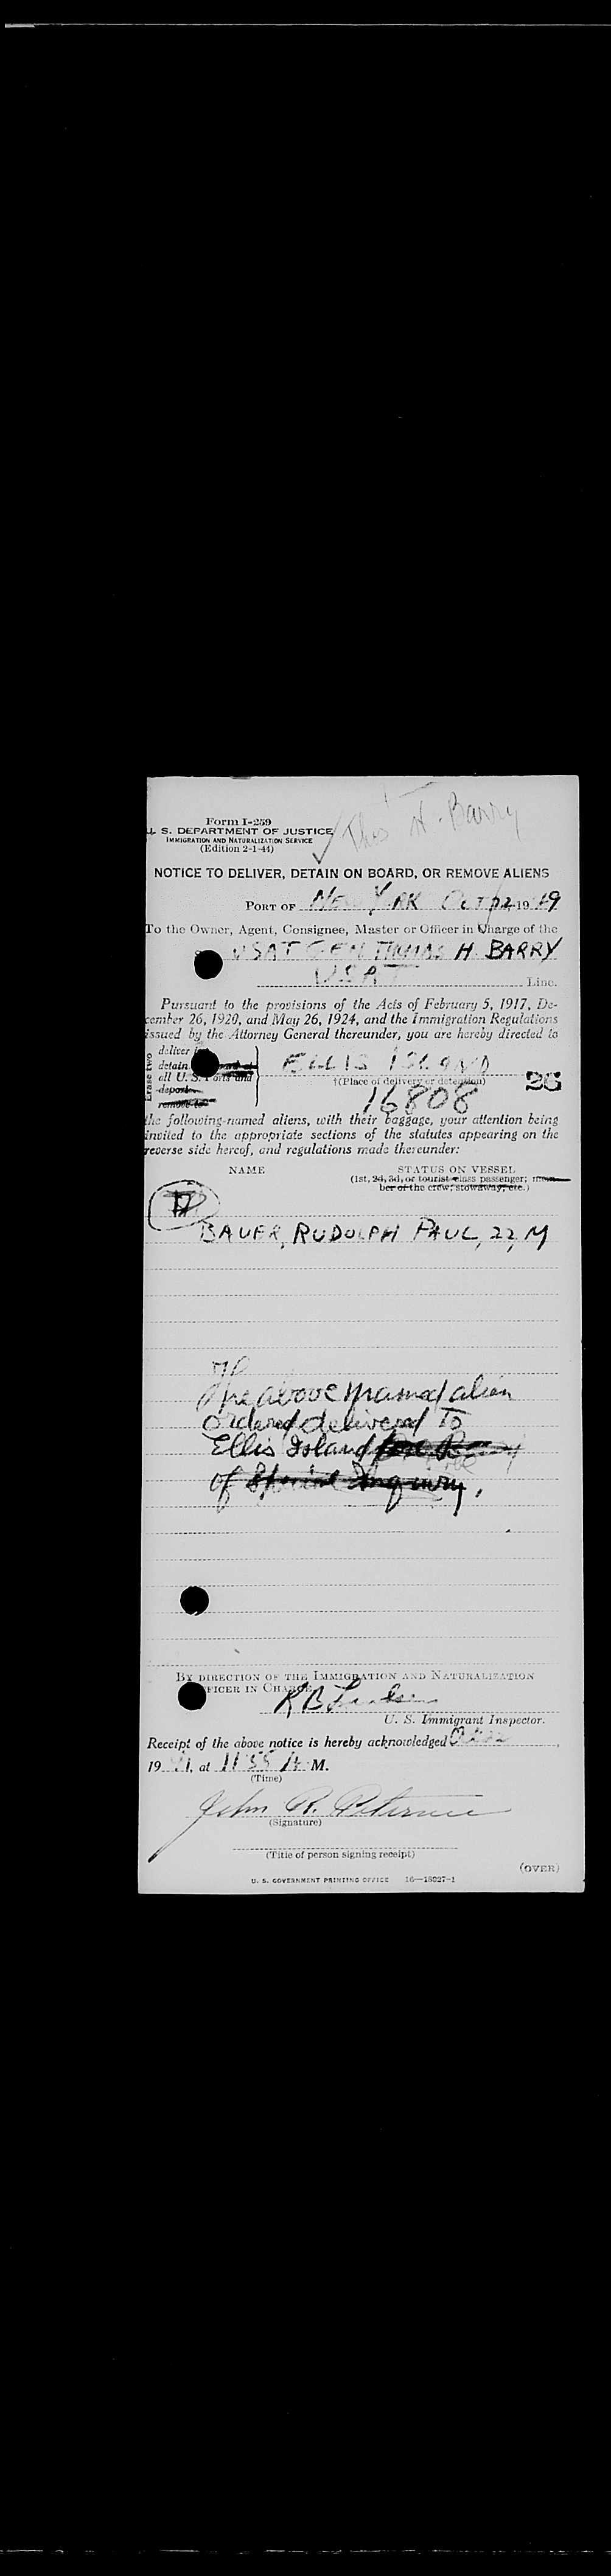 Thos H. Barry
Form I-259
U. S. DEPARTMENT OF JUSTICE
IMMIGRATION AND NATURALIZATION SERVICE
(Edition 2-1-44)
NOTICE TO DELIVER, DETAIN ON BOARD, OR REMOVE ALIENS
PORT OF NEW YORK OCT 12 1949
To the Owner, Agent, Consignee, Master or Officer in Charge of the
USAT GEN THOMAS H BARRY
USAT Line.
Pursuant to the provisions of the Acts of February 5, 1917, De-
cember 26, 1920, and May 26, 1924, and the Immigration Regulations
issued by the Attorney General thereunder, you are hereby directed to
Erase two
deliver
detain
all U. S. Ports and
deport
remove to
ELLIS ISLAND
†(Place of delivery or detention)
26
16808
the following-named aliens, with their baggage, your attention being
invited to the appropriate sections of the statutes appearing on the
reverse side hereof, and regulations made thereunder:
NAME
STATUS ON VESSEL
(1st, 2d, 3d, or tourist class passenger; mem-
ber of the crew; stowaway, etc.)
BAUER, RUDOLPH PAUL, 22, M
The above named alien
ordered delivered to
Ellis Island for
of Special Inquiry.
BY DIRECTION OF THE IMMIGRATION AND NATURALIZATION
OFFICER IN CHARGE
U. S. Immigrant Inspector.
Receipt of the above notice is hereby acknowledged
19 , at 11 55 A M.
(Time)
John R.
(Signature)
(Title of person signing receipt)
(OVER)
U. S. GOVERNMENT PRINTING OFFICE 16—18027-1